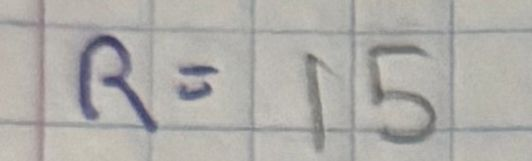 R = 15